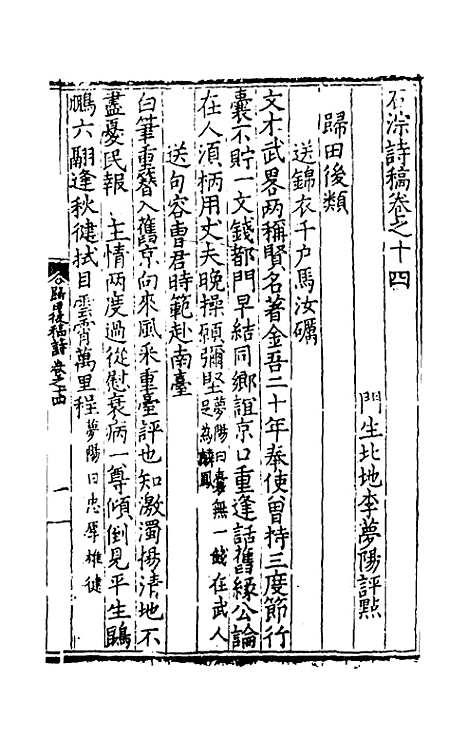 石淙詩稿卷之十四
門生北地李夢陽評點
歸田後類
送錦衣千户馬汝礪
文才武畧两稱賢名著金吾二十年奉使曾持三度節行
囊不貯一文錢都門早結同鄉誼京口重逢話舊緣公論
在人須柄用丈夫晚操願彌堅夢陽曰囊無一錢在武人足為麟鳳
送句容曹君時範赴南臺
白筆重簪入舊京向來風采重臺評也知激濁揚清地不
盡憂民報 主情两度過從慰衰病一尊傾倒見平生鵾
鵬六翮逢秋健拭目雲霄萬里程夢陽曰忠厚雄健
歸田後稿詩 卷之十四
一